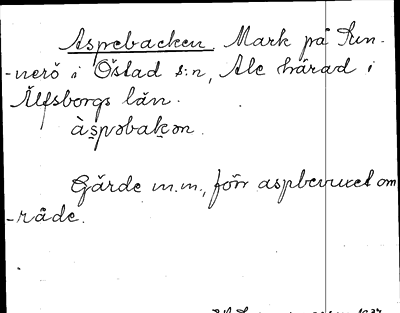 Aspebacken Mark på Run-
-nerö i Östad s:n, Ale härad i
Älfsborgs län.
àspəbakən.
Gärde m.m., förr aspbevuxet om-
-råde.